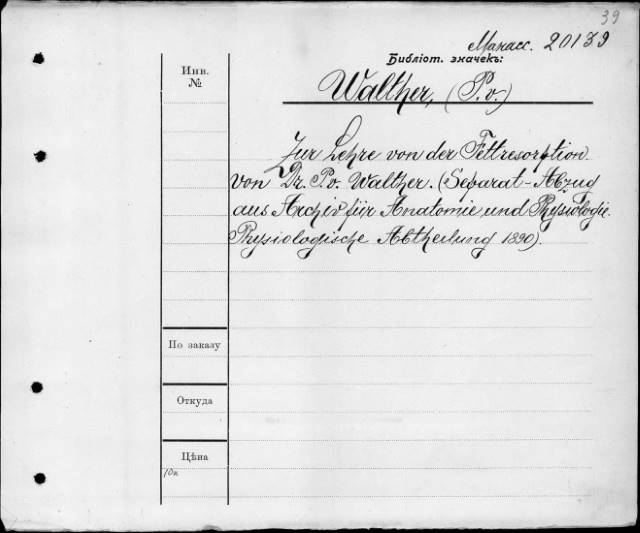 39
Манасс. 20139
Библіот. значекъ:
Инв.
№
Walther, (P. v.)
Zur Lehre von der Fettresorption
von Dr. P. v. Walther. (Separat-Abzug
aus Archiv für Anatomie und Physiologie.
Physiologische Abtheilung 1890).
По заказу
Откуда
Цѣна
10к